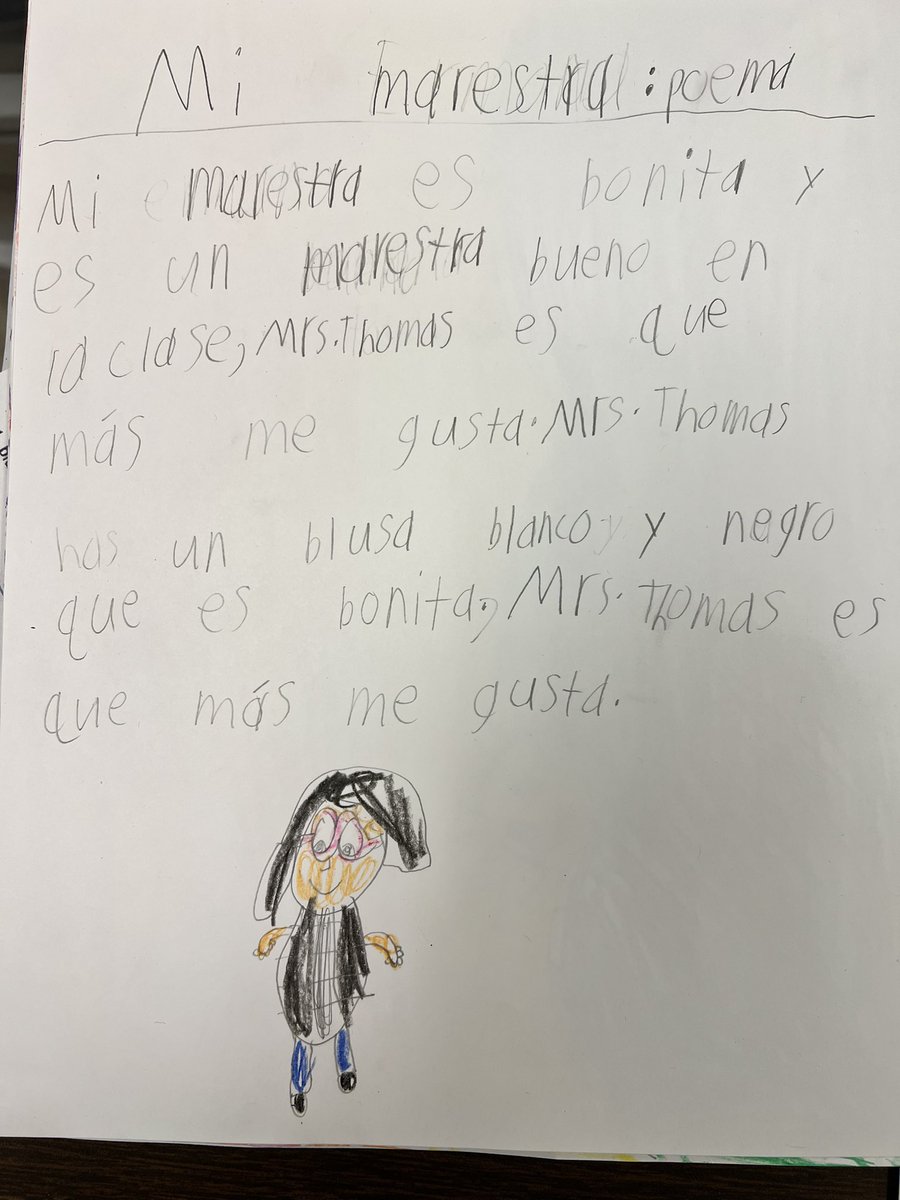 Mi marestra : poema
Mi marestra es bonita y
es un marestra bueno en
la clase, Mrs. Thomas es que
más me gusta. Mrs. Thomas
has un blusa blanco y negro
que es bonita, Mrs. Thomas es
que más me gusta.